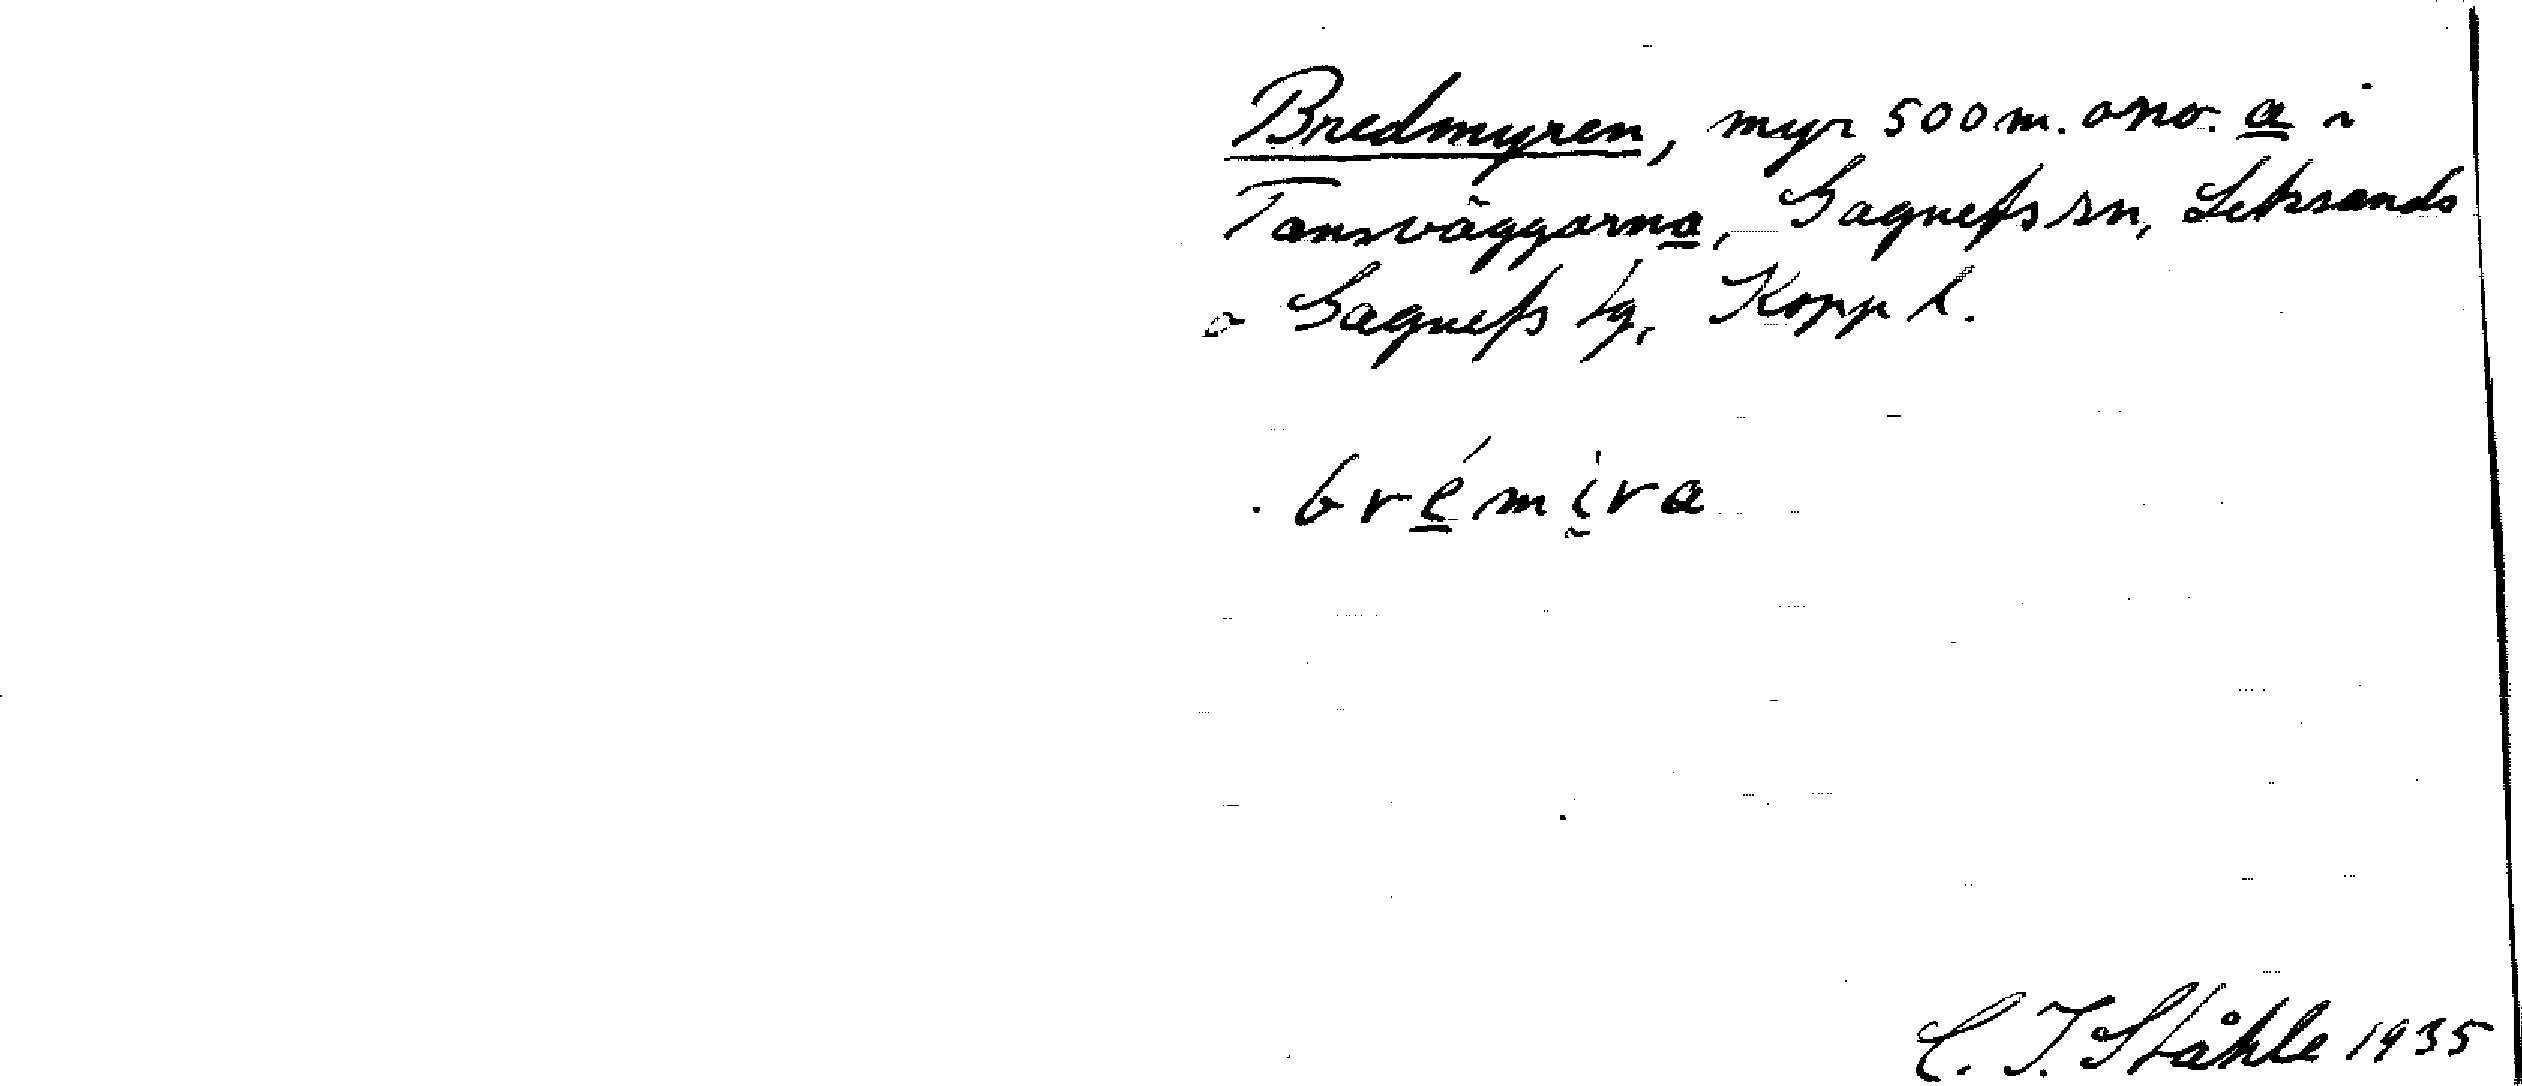 Bredmyren, myr 500 m. ono. a i
Tansväggarna, Gagnefs sn, Leksands
o Gagnefs tg, Kopp l.
brémira
C. I. Ståhle 1935